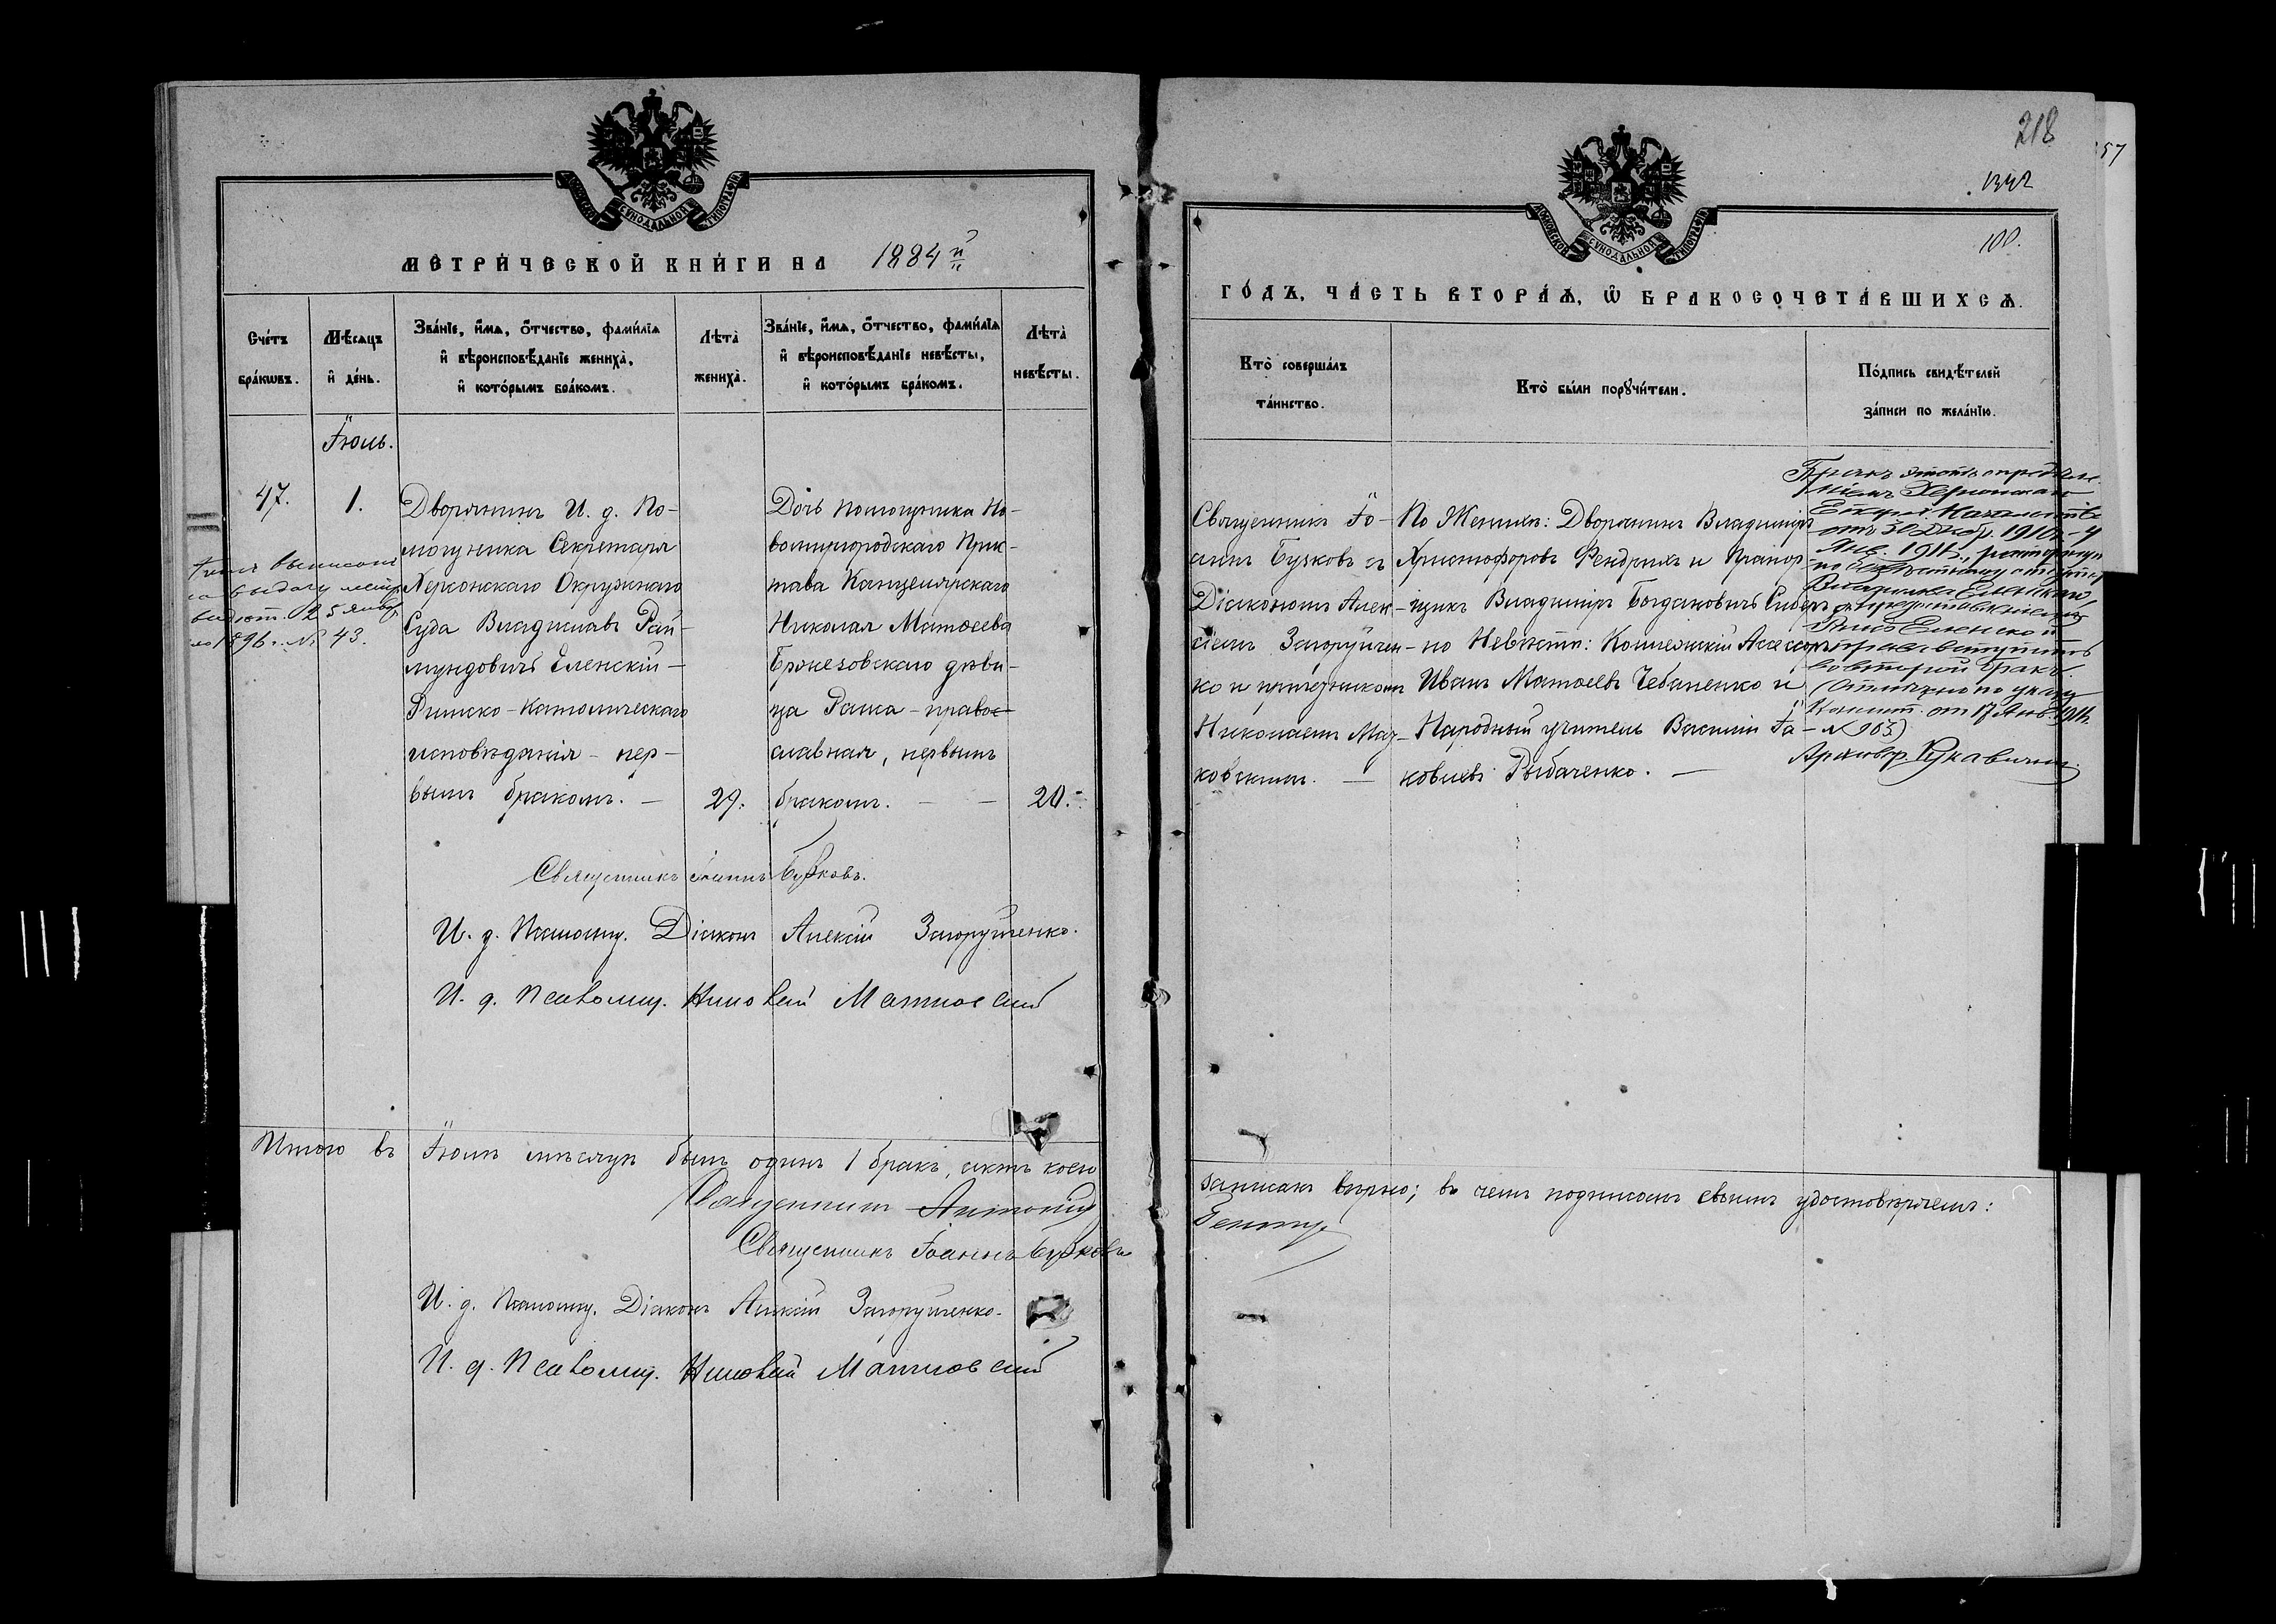 МОСКОВСКОЙ СѴНОДАЛЬНОЙ ТИПОГРАФІИ
МЕТРИ́ЧЕСКОЙ КНИ́ГИ НА 1884 й
Сче́тъ бра́кѡвъ.
Мѣ́сяцъ и де́нь.
Зва́нїе, и́мя, о́тчество, фами́лїя
и вѣроисповѣ́данїе жениха̀,
и кото́рымъ бра́комъ.
Лѣта̀ жениха̀.
Зва́нїе, и́мя, о́тчество, фами́лїя
и вѣроисповѣ́данїе невѣ́сты,
и кото́рымъ бра́комъ.
Лѣта̀ невѣ́сты.
Іюль.
47.
1.
Дворянинъ И. д. По-
мощника Секретаря
Херсонскаго Окружнаго
Суда Владиславъ Рай-
мундовичъ Еленскій -
Римско-Католическаго
исповѣданія - пер-
вымъ бракомъ. -
29.
Дочь помощника Но-
вомиргородскаго Прис-
тава Канцелярскаго
Николая Матвеева
Бржезовскаго дѣви-
ца Раиса - право-
славная, первымъ
бракомъ. - -
20. -
25 Янва
1896 г. № 43.
Священникъ Іоаннъ Бузковъ.
И. д. Псаломщ. Діаконъ Алексій Загоруйченко.
И. д. Псаломщ.
Итого въ Іюлѣ мѣсяцѣ былъ одинъ 1 бракъ, актъ коего
Священникъ Антоній
Священникъ Іоаннъ Бузковъ
И. д. Псаломщ. Діаконъ Алексій Загоруйченко.
И. д. Псаломщ.
218
57
1342
100.
МОСКОВСКОЙ СѴНОДАЛЬНОЙ ТИПОГРАФІИ
ГО́ДЪ, ЧА́СТЬ ВТОРА́Я, Ѡ БРАКОСОЧЕТА́ВШИХСЯ.
Кто̀ соверша́лъ
та́инство.
Кто̀ бы́ли порꙋчи́тели.
По́дпись свидѣ́телей
за́писи по жела́нїю.
Священникъ Іо-
аннъ Бузковъ съ
Діакономъ Алек-
сіемъ Загоруйчен-
ко и причетникомъ
Николаемъ Мат-
ковскимъ. -
По Женихѣ: Дворянинъ Владиміръ
Христофоровъ Фендрихъ и Прапор-
щикъ Владиміръ Богдановичъ
по Невѣстѣ: Коллежскій Ассесоръ
Иванъ Матвеевъ Чебаненко и
Народный учитель Василій Іа-
ковлевъ Рыбаченко. -
Бракъ этотъ опредѣле-
ніемъ Херсонскаго
Епарх. Начальства
отъ 30 Декбр. 1910 г. - 4
Янв. 1911 г., расторгнутъ
по безвѣстному отсутств.
Владислава Еленскаго
съ предоставленіемъ
Раисѣ Еленской
права вступить
во второй бракъ.
(Отмѣчено по указу
Консист. от 17 Янв. 1911 г.
№ 903)
записанъ вѣрно; въ чемъ подписомъ своимъ удостовѣряемъ: